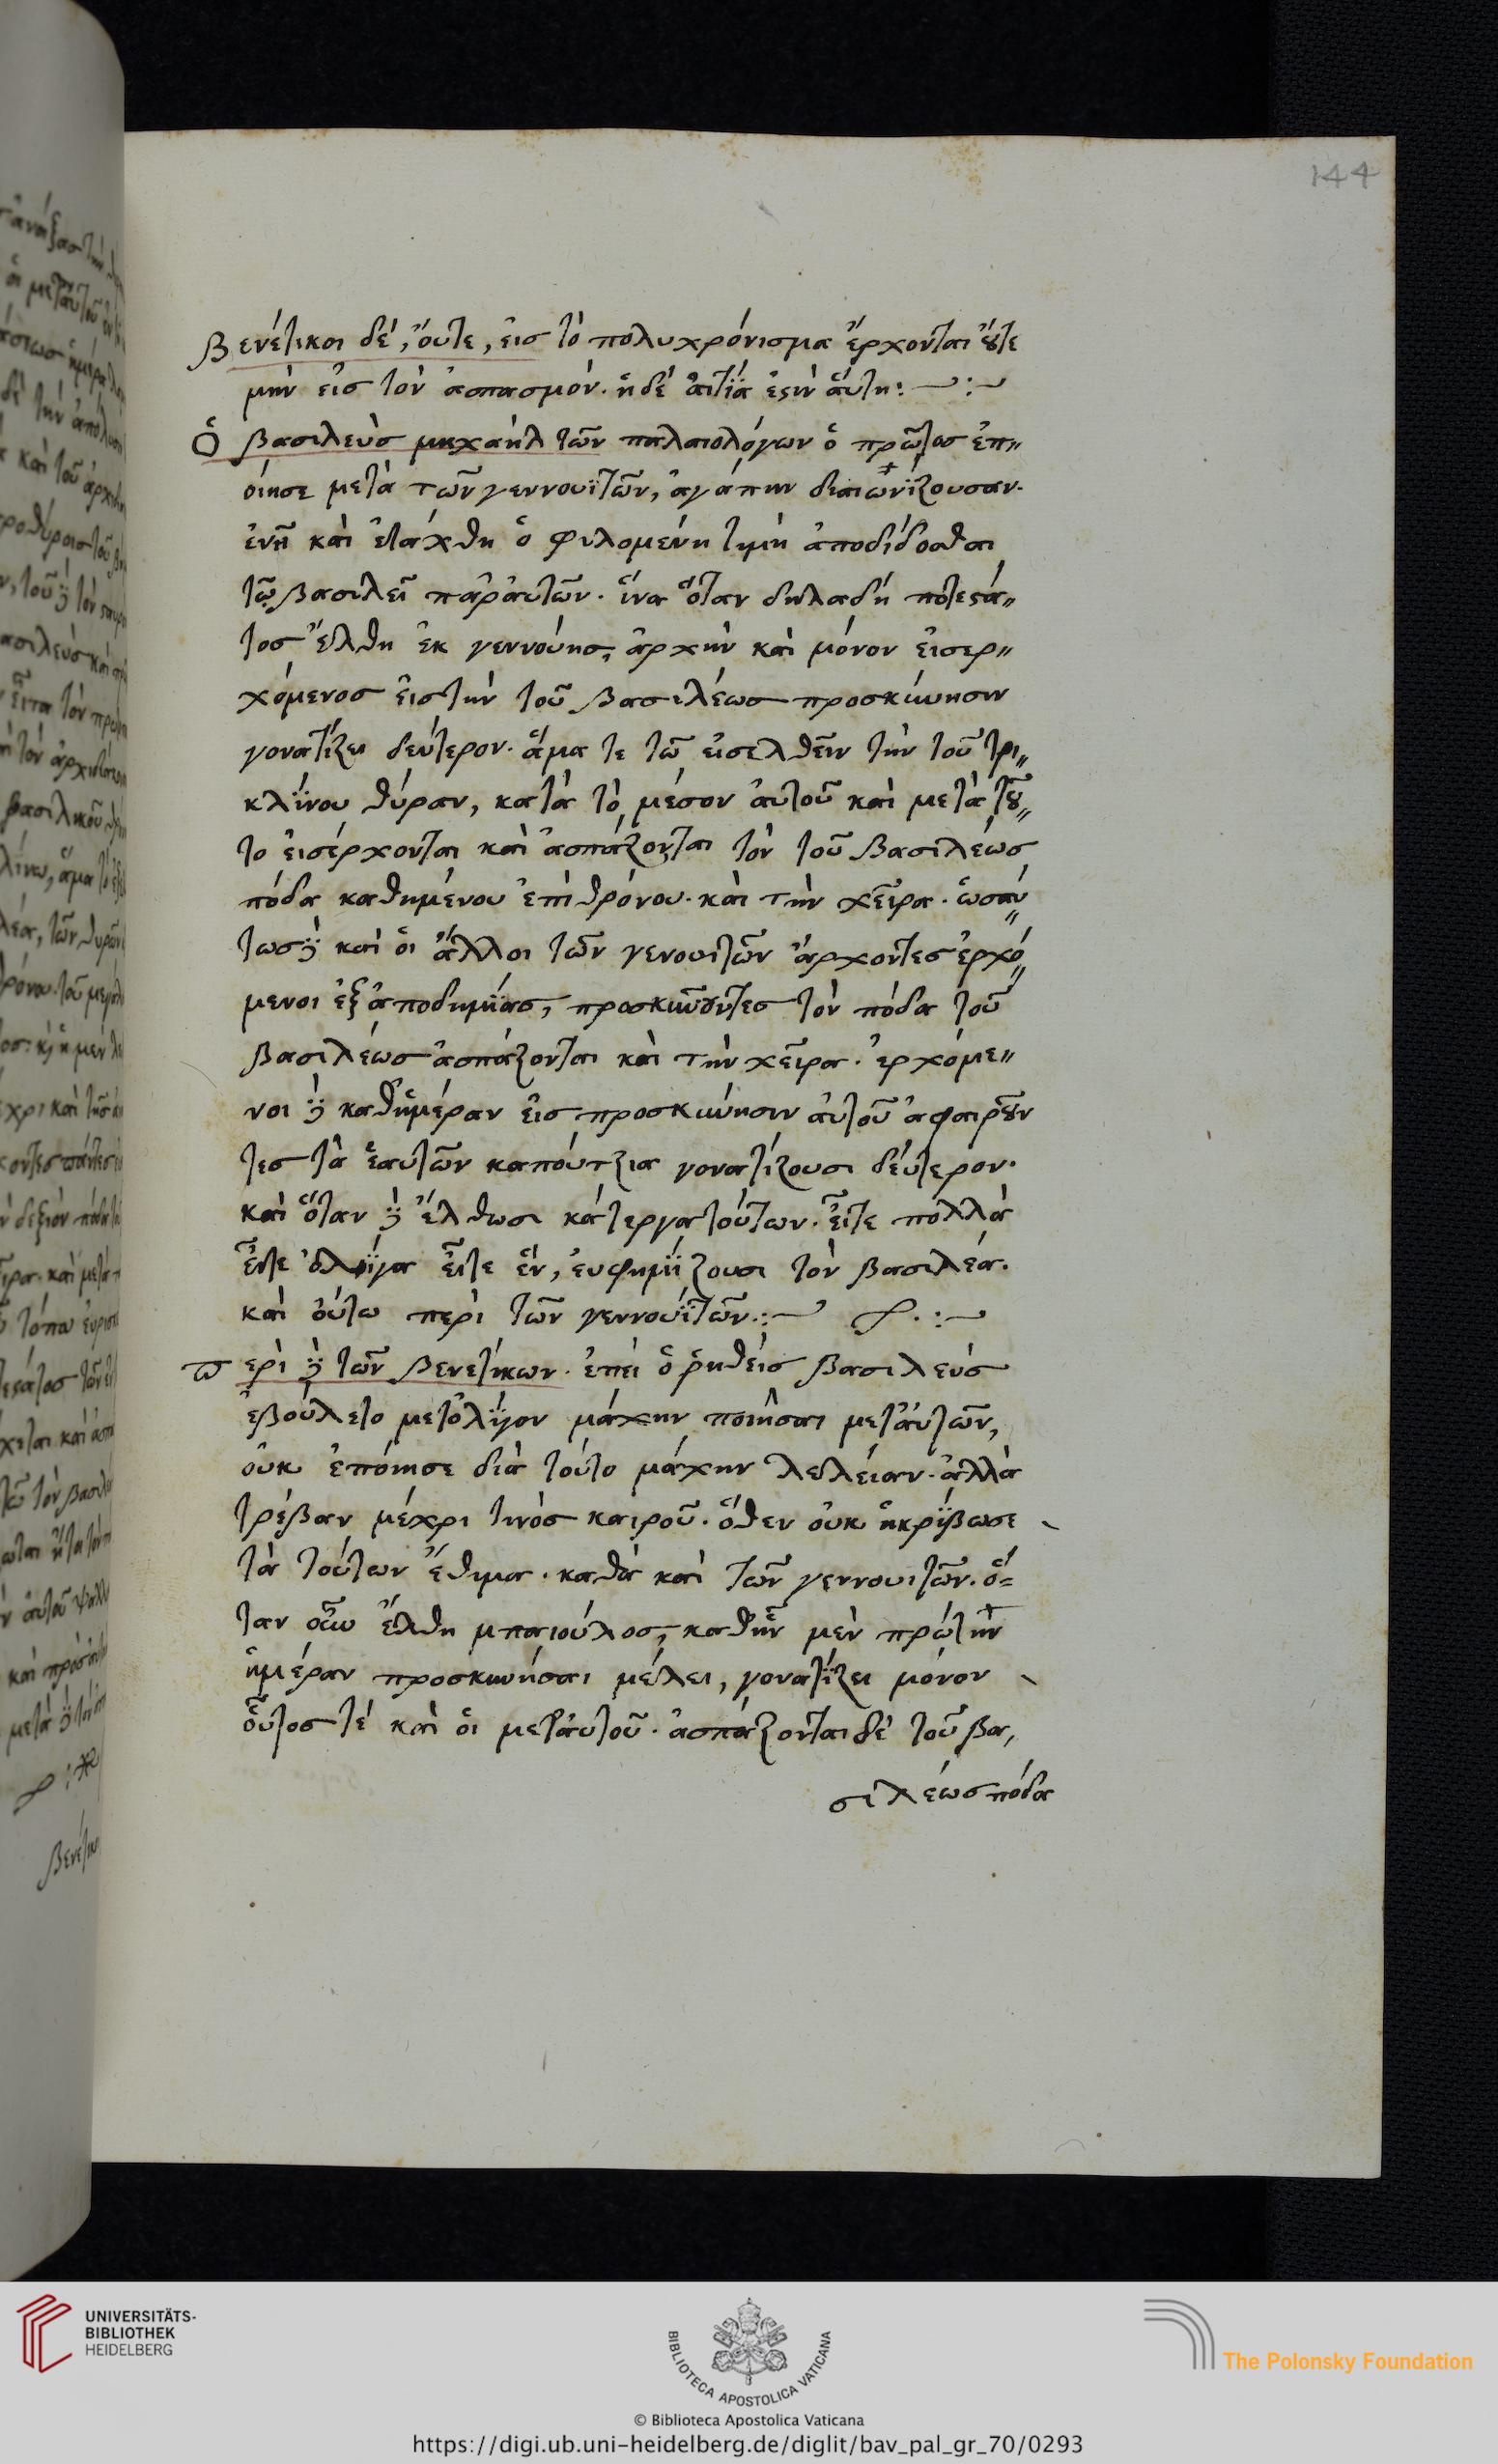 144
Βενέτικοι δέ, ὄυτε, εἰσ τὸ πολυχρόνισμα ἔρχονται ὄυτε
μὴν εἰσ τὸν ἀσπασμόν. ἡ δὲ ἀιτία ἐστὶν ἅυτη:
Ὁ βασιλεὺσ μιχαὴλ τῶν παλαιολόγων ὁ πρῶτοσ ἐπ
οίησε μετὰ τῶν γεννουϊτῶν, ἀγάπην διαιωνίζουσαν.
ἐν ῇ καὶ ἐτάχθη ὁ φιλομένη τιμὴ ἀποδίδοσθαι
τῷ βασιλεῖ παρ᾽ ἀυτῶν. ἵνα ὅταν δηλαδὴ ποτεστά
τοσ ἔλθη ἐκ γεννούησ, ἀρχὴν καὶ μόνον ἐισερ
χόμενοσ ἐισ τὴν τοῦ βασιλέωσ προσκύνησιν
γονατίζει δεύτερον. ἅμα τε τῶ εἰσελθεῖν τὴν τοῦ τρι
κλίνου θύραν, κατὰ τὸ μέσον ἀυτοῦ καὶ μετὰ τοῦ
το ἐισέρχονται καὶ ἀσπάζονται τὸν τοῦ βασιλέωσ
πόδα καθημένου ἐπὶ θρόνου. καὶ τὴν χεῖρα. ὡσάυ
τωσ δὲ καὶ ὁι ἄλλοι τῶν γενουιτῶν ἄρχοντεσ ἐρχό
μενοι ἐξ ἀποδημίασ, προσκυνοῦντεσ τὸν πόδα τοῦ
βασιλέωσ ἀσπάζονται καὶ τὴν χεῖρα. ἐρχόμε
νοι δὲ καθ᾽ ἡμέραν ἐισ προσκύνησιν ἀυτοῦ ἀφαιροῦν
τεσ τὰ ἑαυτῶν καπούτζια γονατίζουσι δέυτερον.
καὶ ὅταν δὲ ἔλθωσι κάτεργα τούτων. εἶτε πολλὰ
εἶτε ὀλίγα εἶτε ἕν, ἐυφημίζουσι τὸν βασιλέα.
καὶ ὁύτω περὶ τῶν γεννουϊτῶν:
Περὶ δὲ τῶν Βενετίκων. ἐπεὶ ὁ ῥηθεὶσ βασιλεὺσ
ἐβούλετο μετ᾽ ὀλίγον μάχην ποιῆσαι μετ᾽ ἀυτῶν,
ὀυκ ἐποίησε διὰ τούτο μάχην τελείαν. ἀλλὰ
τρέβαν μέχρι τινὸσ καιροῦ. ὅθεν ὀυκ ἠκρίβωσε
τὰ τούτων ἔθιμα. καθὰ καὶ τῶν γεννουιτῶν. ὅ
ταν οὖν ἔλθη μπαιούλοσ, καθ᾽ ἣν μὲν πρώτην
ἡμέραν προσκυνήσαι μέλει, γονατίζει μόνον
ὁῦτοσ τὲ καὶ ὁι μετ᾽ ἀυτοῦ. ἀσπάζονται δὲ τοῦ βα
σιλέωσ πόδα
UNIVERSITÄTS-
BIBLIOTHEK
HEIDELBERG
BIBLIOTECA APOSTOLICA VATICANA
The Polonsky Foundation
© Biblioteca Apostolica Vaticana
https://digi.ub.uni-heidelberg.de/diglit/bav_pal_gr_70/0293